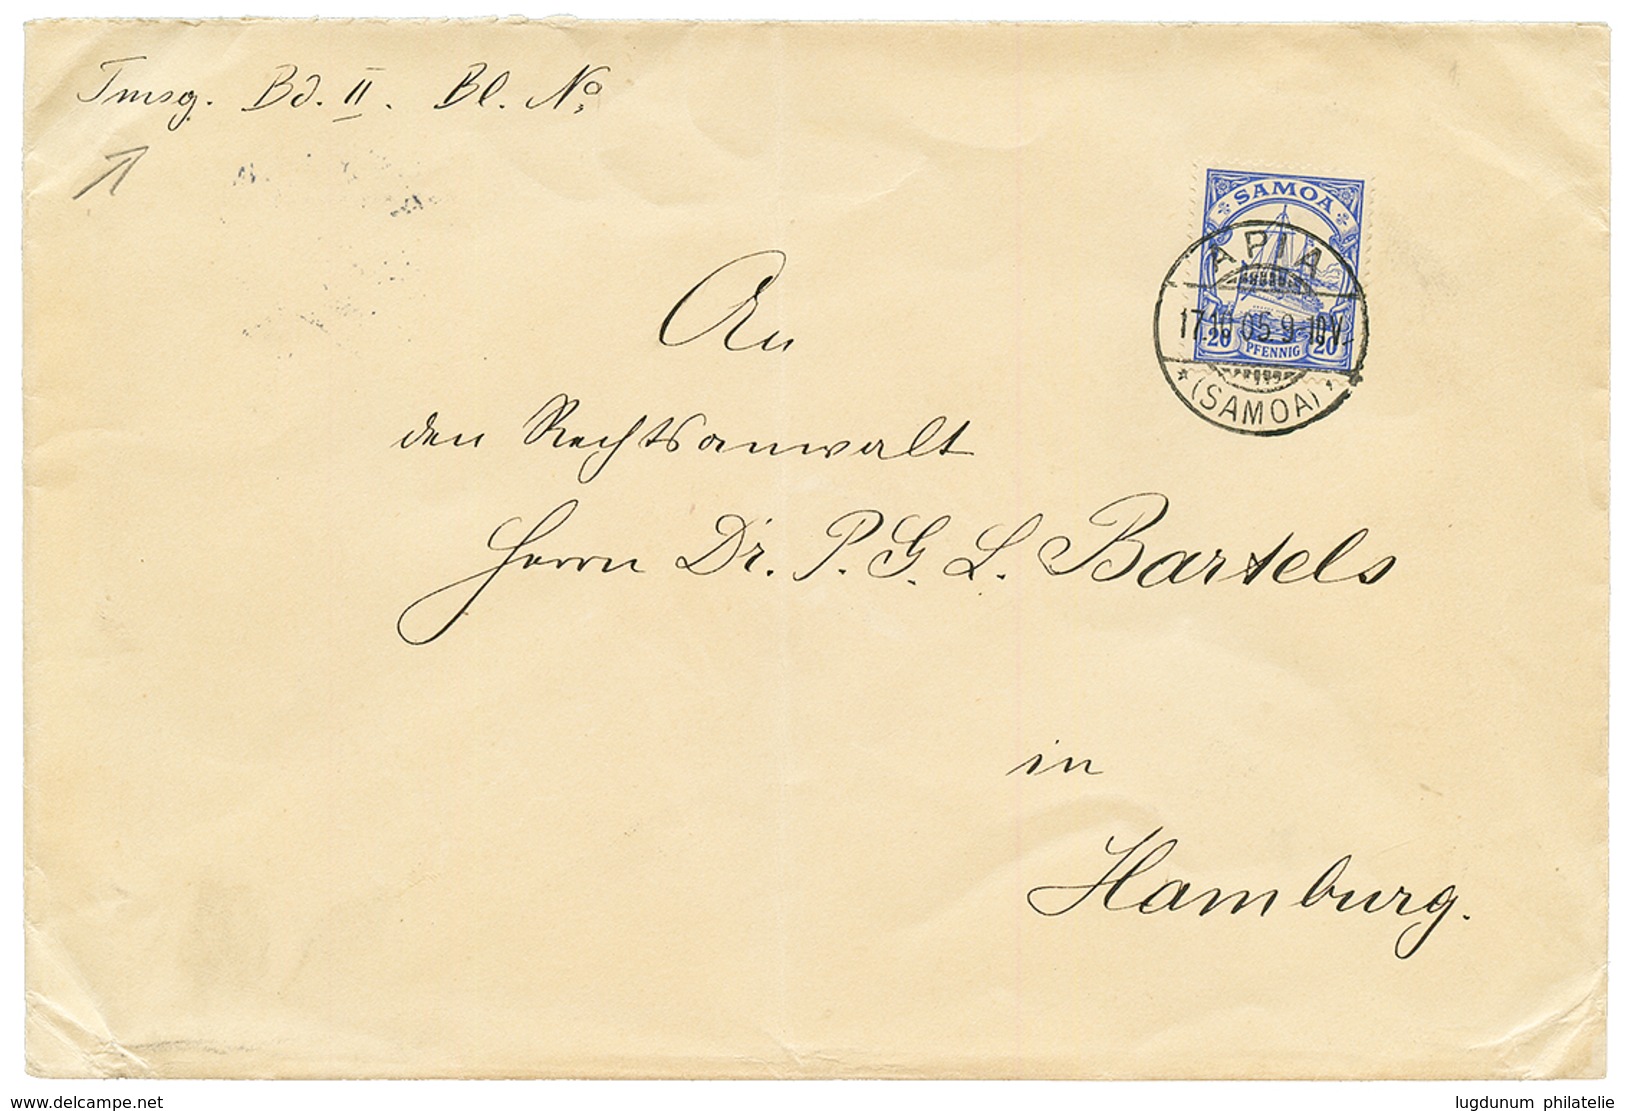 Tmsg. Bd. II. Bl. No
SAMOA
APIA
17.10.05.9-10V.
20 PFENNIG 20
(SAMOA)
An
den Rechtsanwalt
Herrn Dr. P. G. L. Bartels
in
Hamburg.
www.delcampe.net
lugdunum philatelie